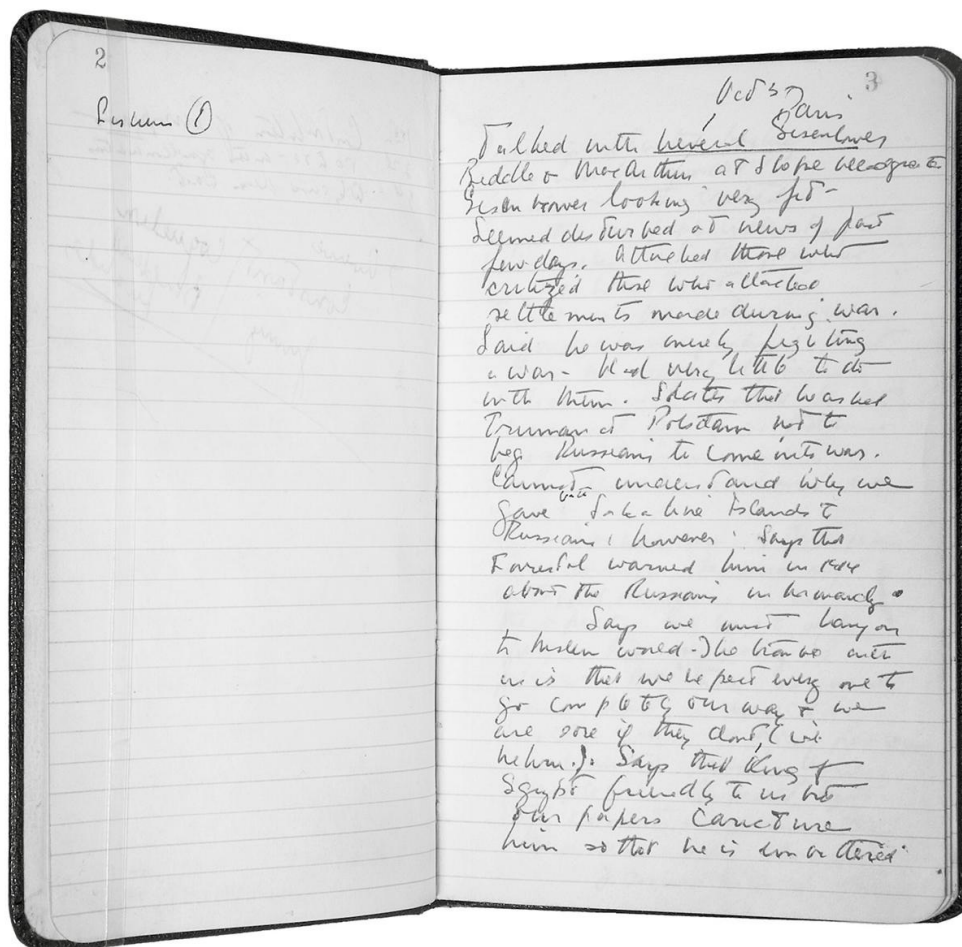 2
3
Oct 3 Paris
Talked with General Eisenhower
Biddle & MacArthur at Shape
Eisenhower looking very fit –
Seemed disturbed at news of past
few days. Attacked those who
critized those who attacked
settlements made during war.
Said he was merely fighting
a war – Had very little to do
with them. States that he asked
Truman at Potsdam not to
beg Russians to come into war.
Cannot understand why we
gave Islands to
Russians however. Says that
Forrestal warned him in 1944
about the Russians in
Says we must hang on
to Moslem world – The trouble with
us is that we expect every one to
go completely our way & we
are sore if they don't
Says that King of
Egypt friendly to us but
our papers caricture
him so that he is embittered